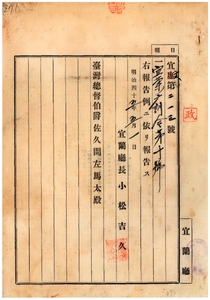 明
日
宜廳第二一三號
一宜蘭廳令第十號
右報告例ニ依リ報告ス
明治四十五年五月一日
宜蘭廳長小松吉久
臺灣總督伯爵佐久間左馬太殿
宜蘭廳